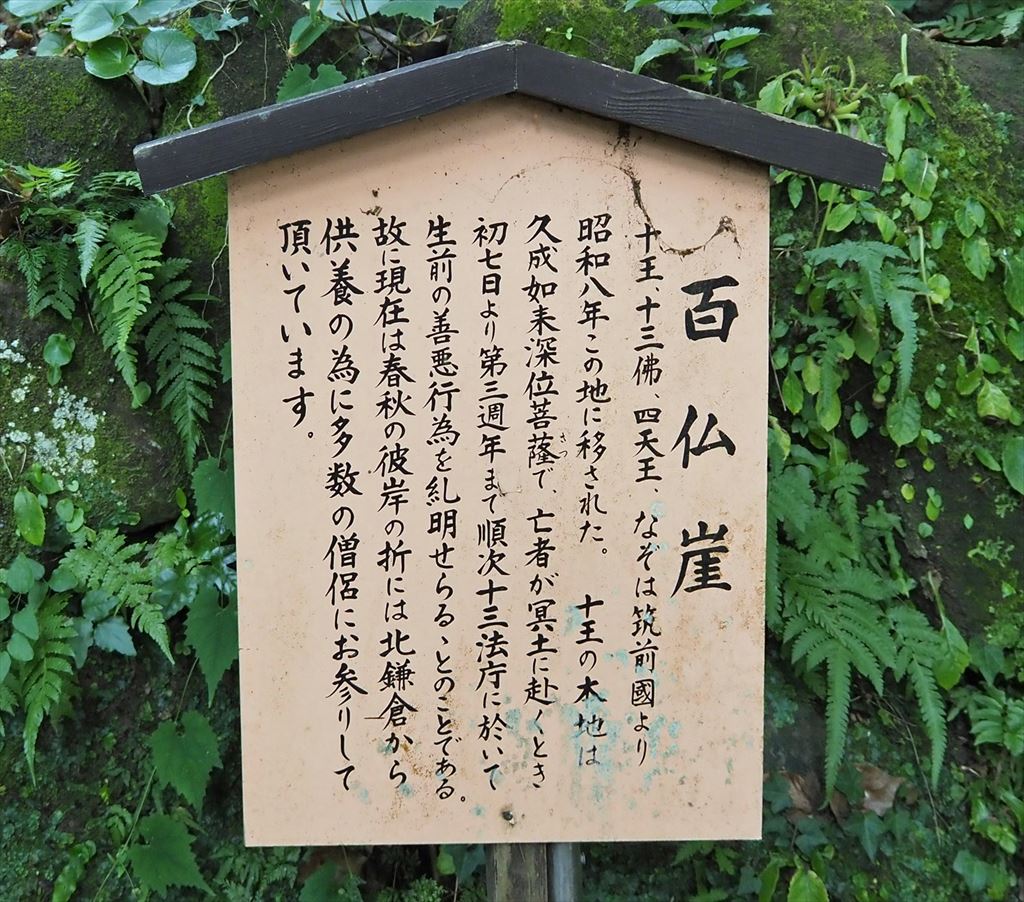 百仏崖
十王、十三佛、四天王、なぞは筑前國より
昭和八年この地に移された。 十王の本地は
久成如来深位菩薩で、亡者が冥土に赴くとき
さつ
初七日より第三週年まて順次十三法庁に於いて
生前の善悪行為を糺明せらるゝとのことである。
故に現在は春秋の彼岸の折には北鎌倉から
供養の為に多数の僧侶にお参りして
頂いています。